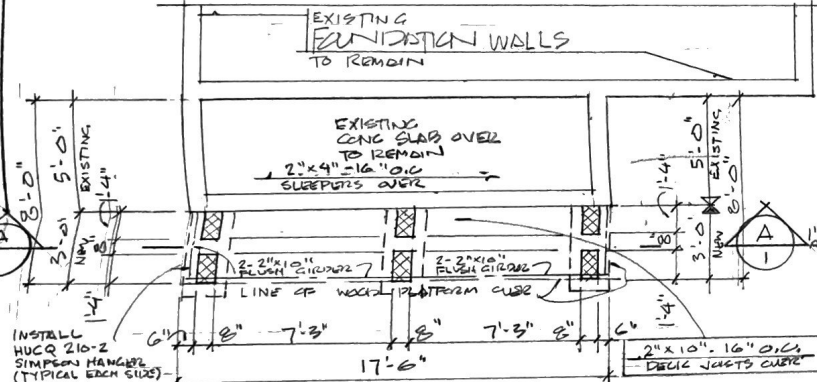 EXISTING
FOUNDATION WALLS
TO REMAIN
EXISTING
CONC SLAB OVER
TO REMAIN
2"x4"-16"O.C
SLEEPERS OVER
8'-0"
5'-0"
EXISTING
1'-4"
3'-0"
NEW
8"
1'-4"
1'-4"
5'-0"
EXISTING
8'-0"
8"
3'-0"
NEW
1'-4"
A
1
2-2"x10"
FLUSH GIRDER
2-2"x10"
FLUSH GIRDER
LINE OF WOOD PLATFORM OVER
INSTALL
HUCQ 210-2
SIMPSON HANGER
(TYPICAL EACH SIDE)
6" 8" 7'-3" 8" 7'-3" 8" 6"
17'-6"
2"x10"-16"O.C.
DECK JOISTS OVER